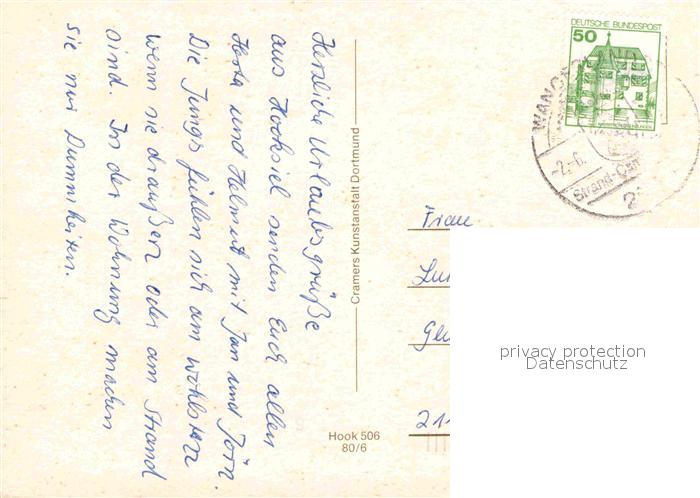 Herzliche Urlaubsgrüße
aus Hooksiel senden Euch allen
Herta und Helmut mit Jan und Jörn.
Die Jungs fühlen sich am wohlsten
wenn sie draußen oder am Strand
sind. In der Wohnung machen
sie nur Dummheiten.
Cramers Kunstanstalt Dortmund
Hook 506
80/6
DEUTSCHE BUNDESPOST
50
WANGERLAND
-2.-6.
Strand-Cam
Frau
privacy protection
Datenschutz